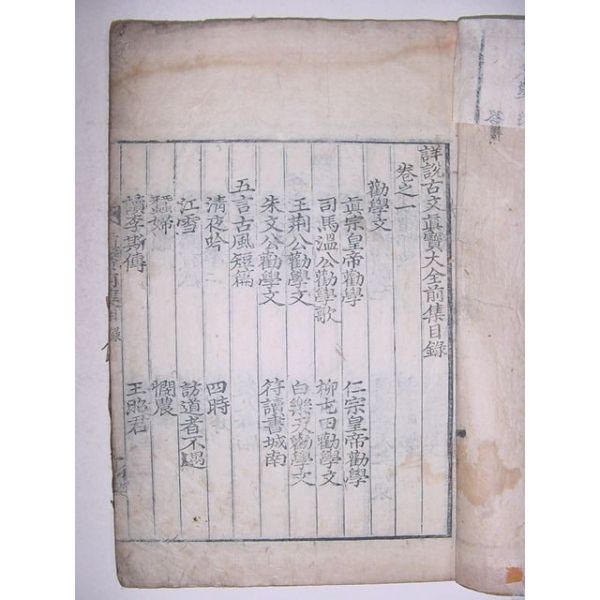 詳說古文眞寶大全前集目錄
卷之一
勸學文
眞宗皇帝勸學 仁宗皇帝勸學
司馬溫公勸學歌 柳屯田勸學文
王荊公勸學文 白樂天勸學文
朱文公勸學文 符讀書城南
五言古風短篇
淸夜吟 四時
江雪 訪道者不遇
蠶婦 憫農
讀李斯傳 王昭君